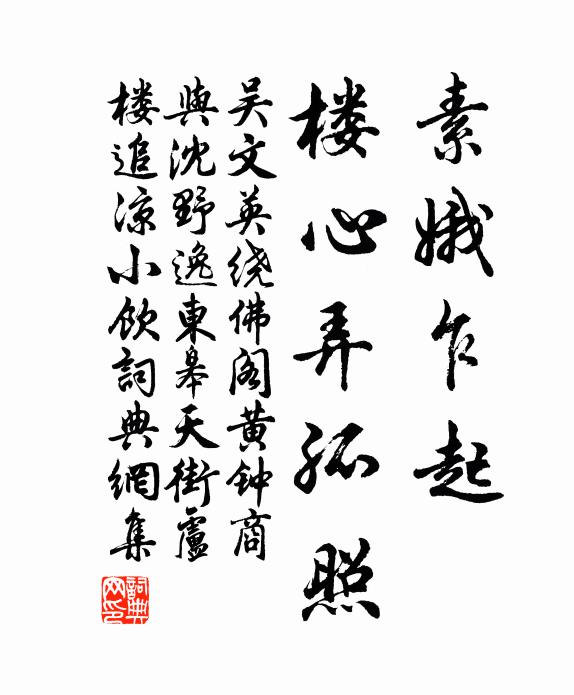 素娥乍起
楼心弄孤照
吴文英绕佛阁黄钟商
與沈野逸東皋天街盧
楼追凉小飲詞典網集
詞典网印